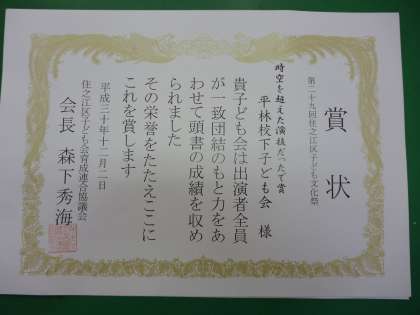 賞状
第二十九回住之江区子ども文化祭
時空を超えた演技だったで賞
平林校下子ども会 様
貴子ども会は出演者全員
が一致団結のもと力をあ
わせて頭書の成績を収め
られました
その栄誉をたたえここに
これを賞します
平成三十年十二月二日
住之江区子ども会育成連合協議会
会長 森下秀海